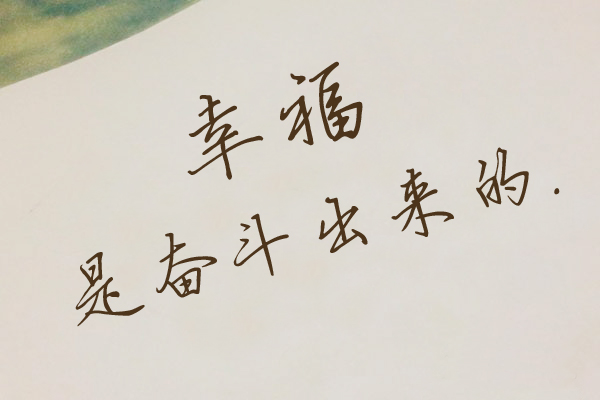 幸福
是奋斗出来的.